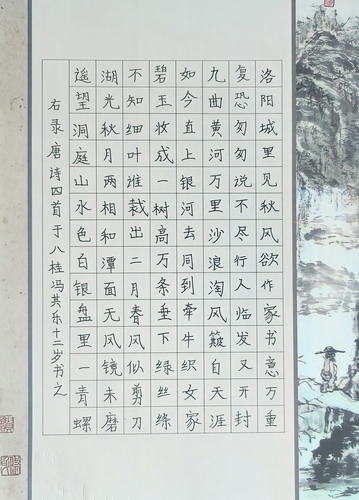 洛阳城里见秋风欲作家书意万重
复恐匆匆说不尽行人临发又开封
九曲黄河万里沙浪淘风簸自天涯
如今直上银河去同到牵牛织女家
碧玉妆成一树高万条垂下绿丝绦
不知细叶谁裁出二月春风似剪刀
湖光秋月两相和潭面无风镜未磨
遥望洞庭山水色白银盘里一青螺
右录唐诗四首于八桂冯其乐十二岁书之